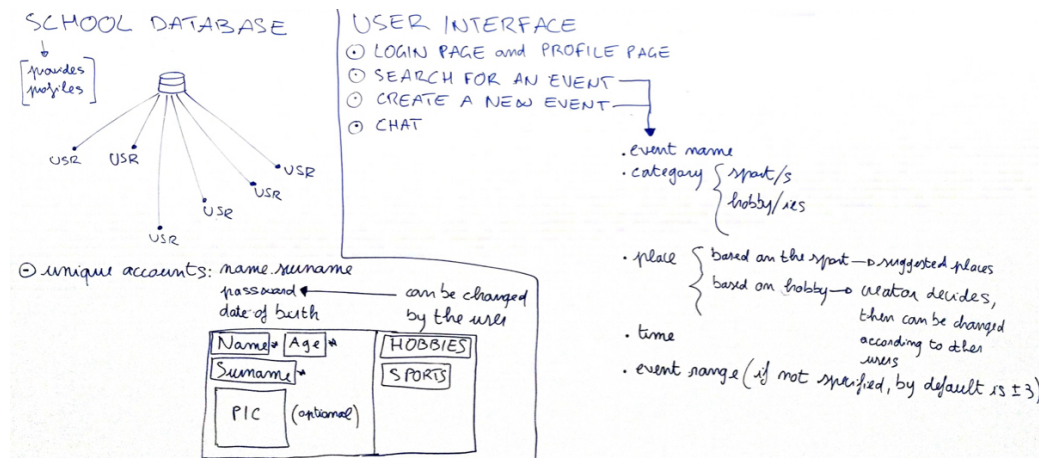 SCHOOL DATABASE
provides
profiles
USR
USR
USR
USR
USR
USR
unique accounts: name.surname
password
date of birth
can be changed
by the user
Name*
Age*
Surname*
PIC
(optional)
HOBBIES
SPORTS
USER INTERFACE
LOGIN PAGE and PROFILE PAGE
SEARCH FOR AN EVENT
CREATE A NEW EVENT
CHAT
. event name
. category
sport/s
hobby/ies
. place
based on the sport → suggested places
based on hobby → creator decides,
then can be changed
according to other
users
. time
. event range (if not specified, by default is ±3)